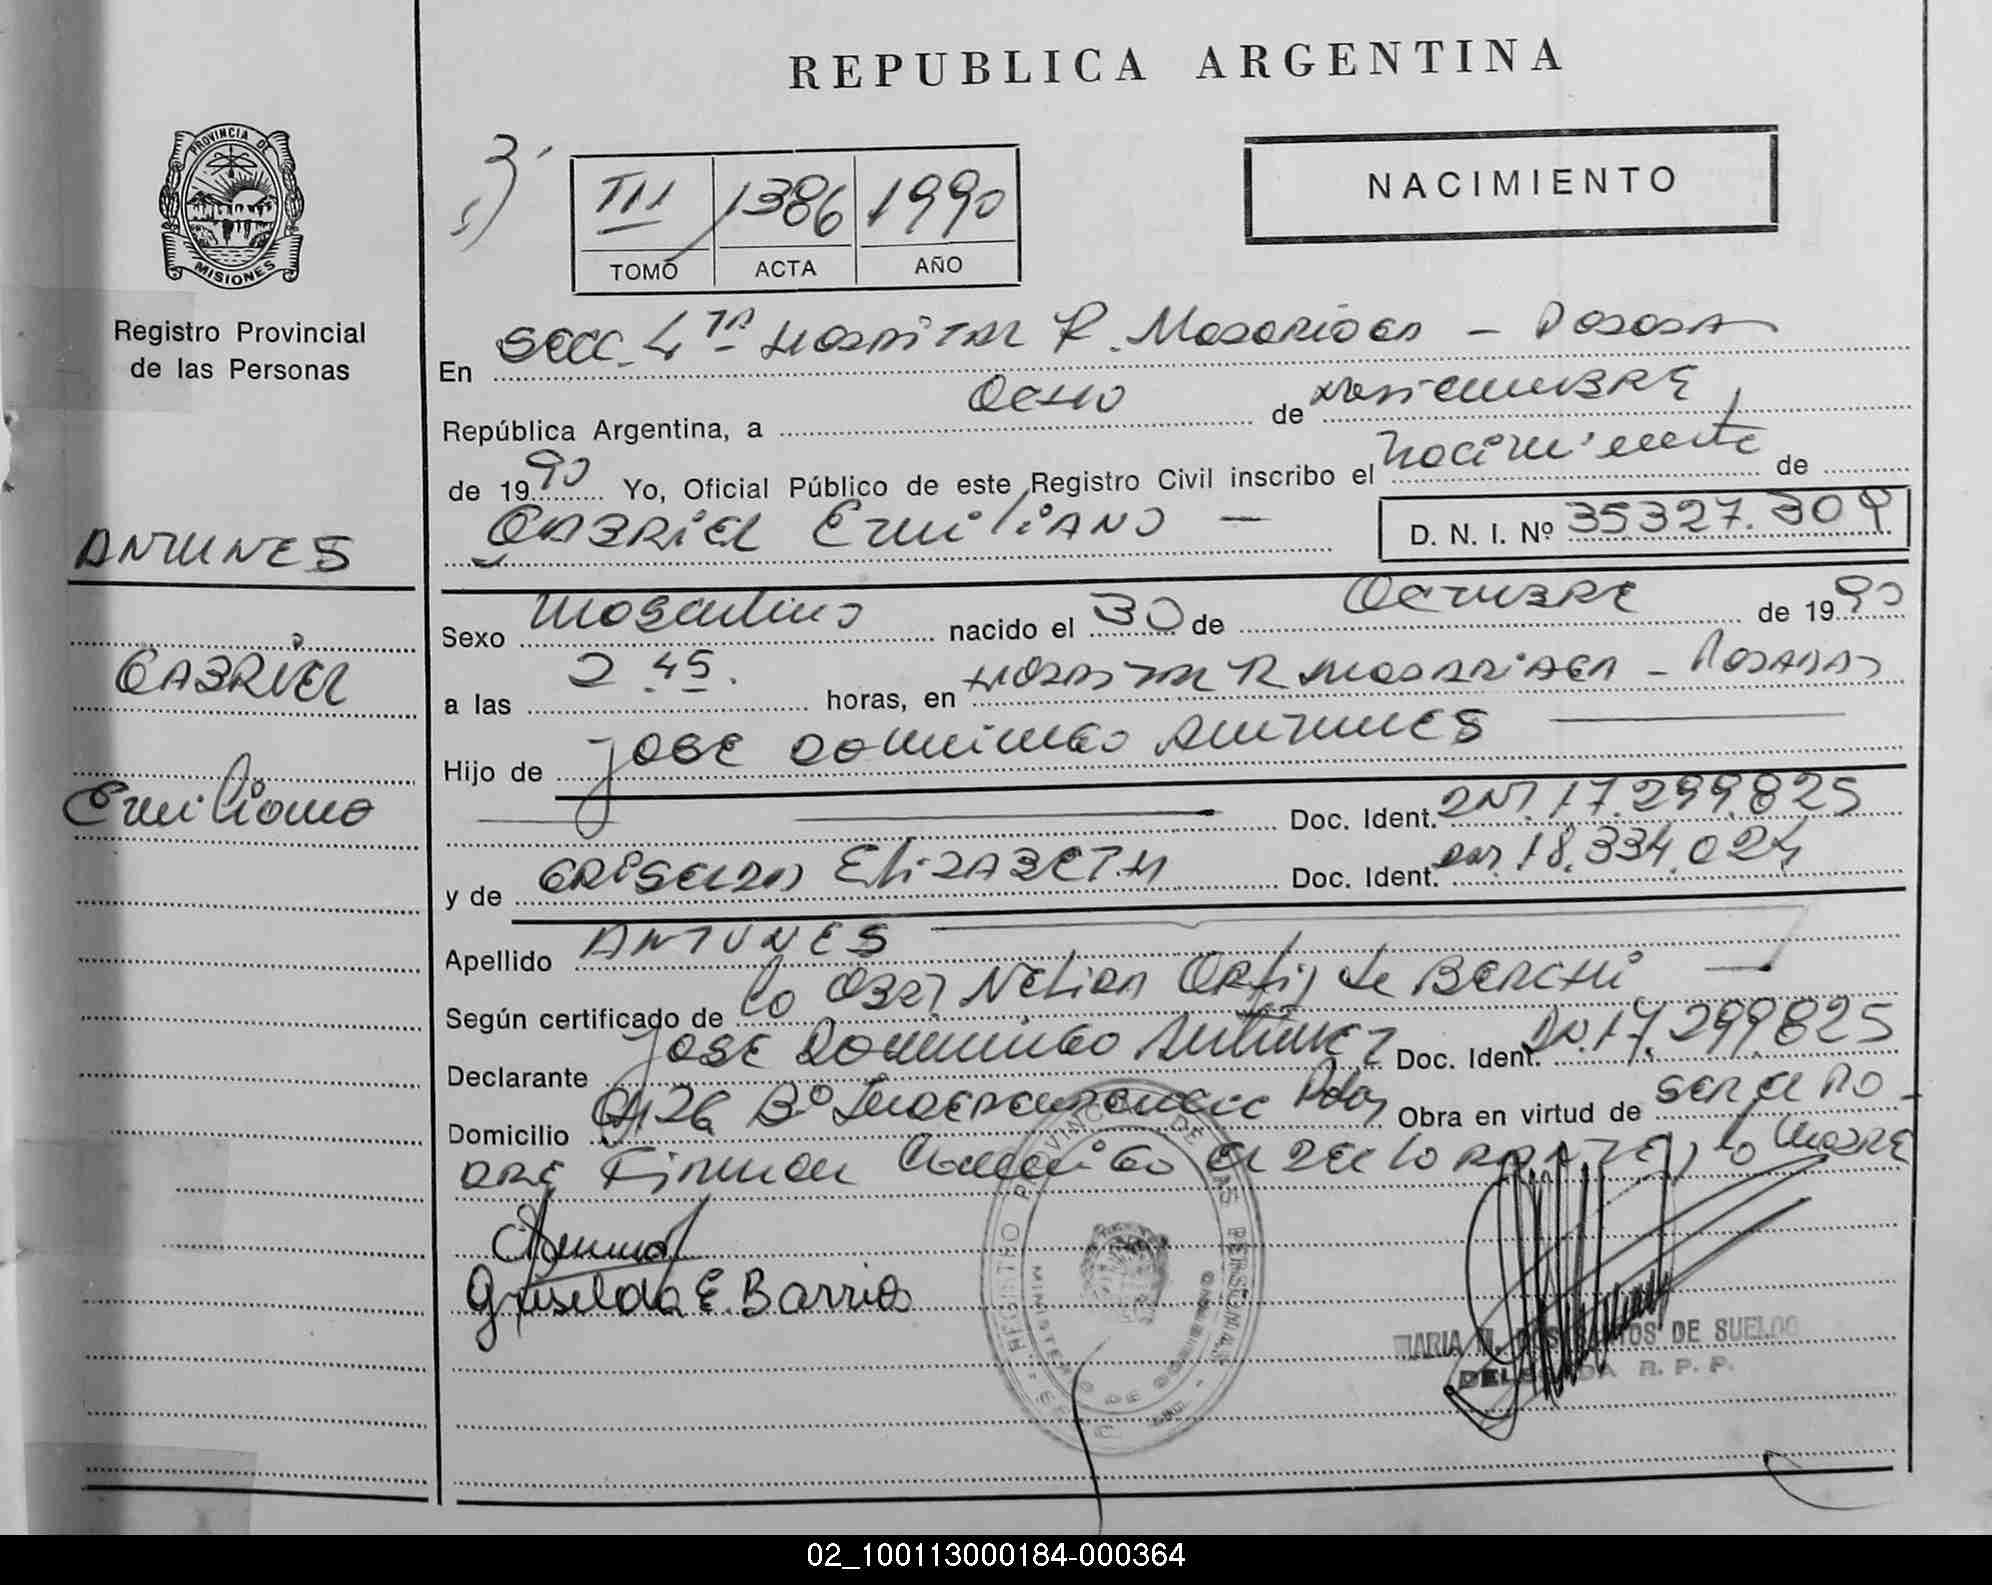 REPUBLICA ARGENTINA
PROVINCIA DE
MISIONES
Registro Provincial
de las Personas
III 1386 1990
TOMO ACTA AÑO
NACIMIENTO
En SECC. 4TA HOSPITAL R. Madariaga - Posadas
República Argentina, a OCHO de NOVIEMBRE
de 1990 Yo, Oficial Público de este Registro Civil inscribo el nacimiento de
GABRIEL EmiliANO — D. N. I. Nº 35327.309
ANTUNES
GABRIEL
Emiliano
Sexo Masculino nacido el 30 de OCTUBRE de 1990
a las 2.45. horas, en HOSPITAL R MADARIAGA - POSADAS
Hijo de JOSE DOMINGO ANTUNES
Doc. Ident. DNI. 17.299.825
y de GRISELDA EliZABETH Doc. Ident. DNI. 18.334.024
Apellido ANTUNES
Según certificado de la OBST NELIDA ORTIZ de BERCHI
Declarante JOSE DOMINGO Antunez Doc. Ident. DNI. 17.299825
Domicilio 126 Bº Independencia Pdas Obra en virtud de SER EL PA-
DRE Firman conmigo el DECLARANTE y la MADRE
Griselda E. Barrios
REGISTRO PROVINCIAL DE LAS PERSONAS
MINISTERIO DE GOBIERNO
MARIA M. DOS SANTOS DE SUELDO
DELEGADA R. P. P.
02_100113000184-000364